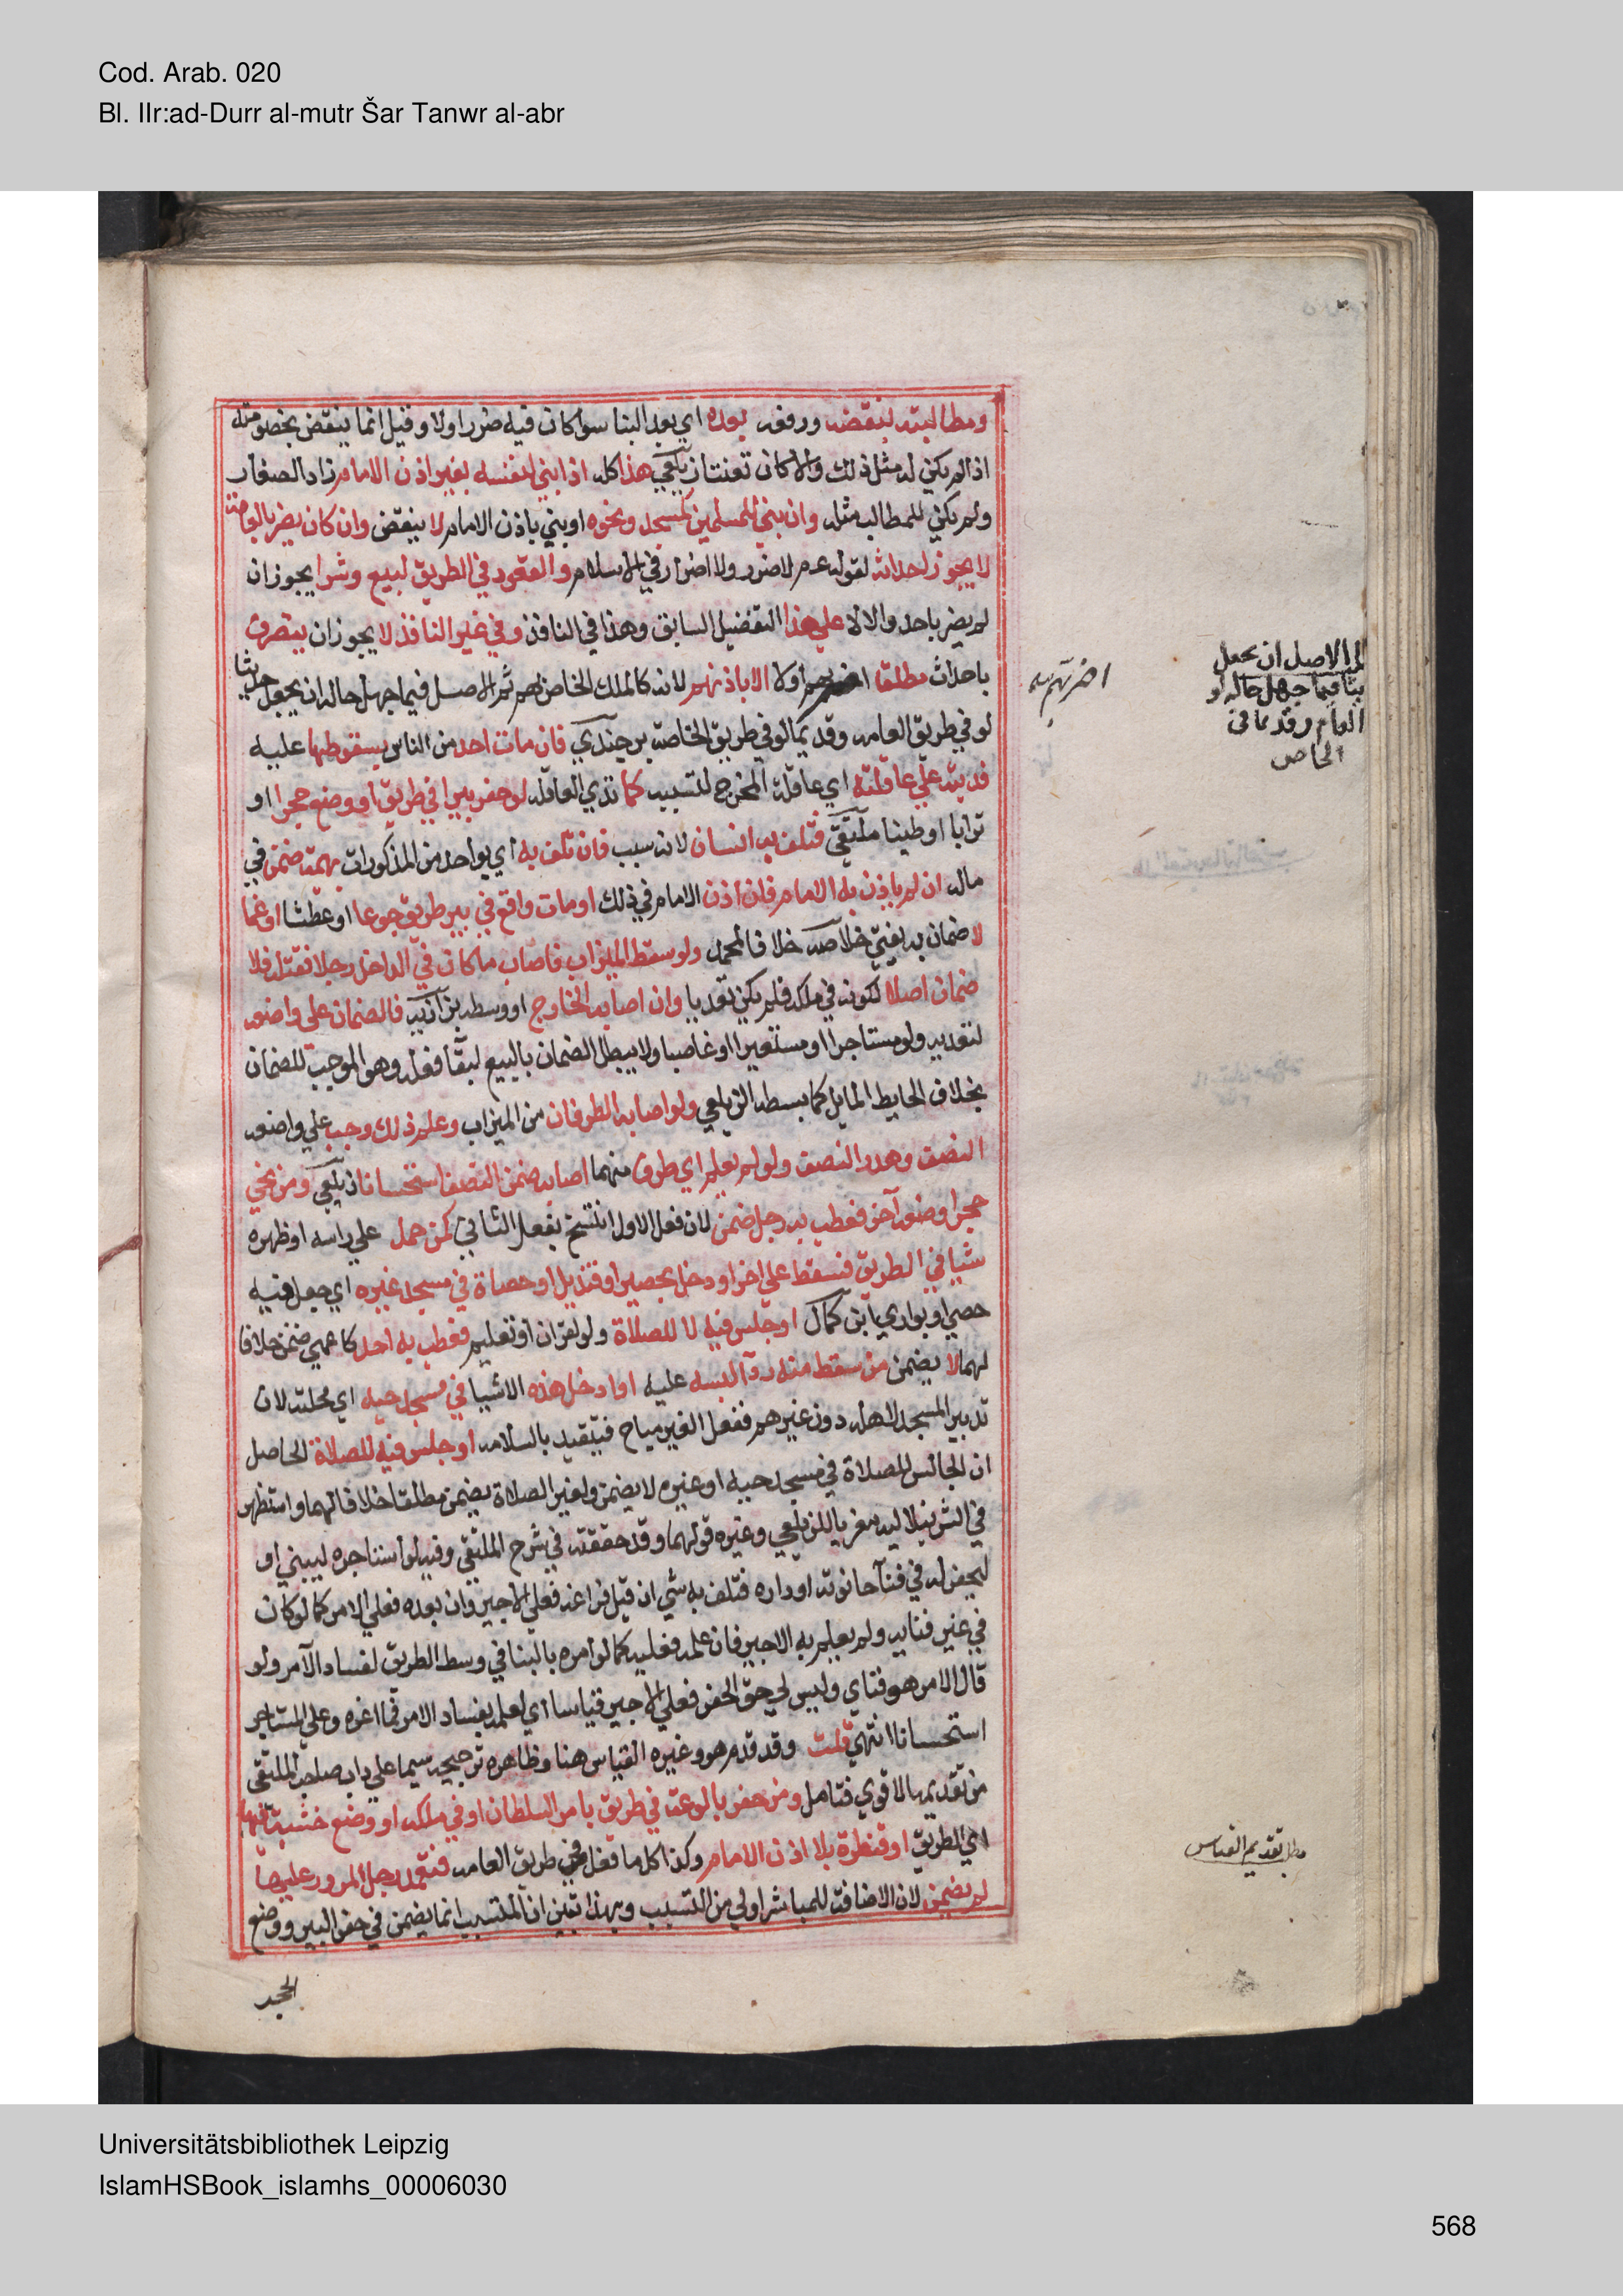 Cod. Arab. 020
Bl. IIr:ad-Durr al-mutr Šar Tanwr al-abr
ومطالبته بنقضه ورفعه بعده اي بعد البنا سوا كان فيه ضرر اولا وقيل انما ينقض بخصومته
اذا لم يكن له مثل ذلك والا كان تعنتا زيلعي هذا كله اذا بني لنفسه بغير اذن الامام زاد الصفار
ولم يكن للمطالب مثله وان بني للمسلمين كمسجد ونحوه او بني باذن الامام لا ينقض وان كان يضر بالعامة
لا يجوز احداثه لقوله عم لا ضرر ولا اضرار في الاسلام والقعود في الطريق لبيع وشرا يجوز ان
لم يضر باحد والا لا علي هذا التفضيل السابق وهذا في النافذ وفي غير النافذ لا يجوز ان يتصرف
باحداث مطلقا اولا الا باذنهم لانه كالملك الخاص لهم ثم الاصل فيما جهل حاله ان يجعل حديثا
لو في طريق العامه وقديما لو في طريق الخاصة برجندي فان مات احد من الناس بسقوطها عليه
فديته علي عاقلته اي عاقلة المخرج لتسببه كما تدي العاقله لو حفر بيرا في طريق او وضع حجرا او
ترابا او طينا ملتقي فتلف به انسان لانه سبب فان تلف به اي بواحد من المذكورات بهيمة ضمن في
ماله ان لم ياذن به الامام فان اذن الامام في ذلك او مات واقع في بير طريق جوعا او عطشا او غما
لا ضمان به يفتي خلاصه خلافا لمحمد ولو سقط الميزاب فاصاب ما كان في الداخل رجلا فقتله فلا
ضمان اصلا لكونه في ملكه فلم يكن تعديا وان اصابه الخارج او وسطه بزازيه فالضمان علي واضعه
لتعديه ولو مستاجرا او مستعيرا او غاصبا ولا يبطل الضمان بالبيع لبقا فعله وهو الموجب للضمان
بخلاف الحايط المايل كما بسطه الزيلعي ولو اصابه الطرفان من الميزاب وعلم ذلك وجب علي واضعه
النصف وهدر النصف ولو لم يعلم اي طرف منهما اصابه ضمن النصف استحسانا زيلعي ومن نحي
حجرا وضعه آخر فعطب به رجل ضمن لان فعل الاول انتسخ بفعل الثاني كمن حمل علي راسه او ظهره
شيا في الطريق فسقط علي اخر او دخل بحصير او قنديل او حصاة في مسجد غيره اي جعل فيه
حصي او بواري ابن كمال او جلس فيه لا للصلاة ولو لقران او تعليم فعطب به احد كاعمي ضمن خلافا
لهما لا يضمن من سقط منه ردآ لبسه عليه او ادخل هذه الاشيا في مسجد حيه اي محلته لان
تدبير المسجد لاهله دون غيرهم ففعل الغير مباح فيتقيد بالسلامه او جلس فيه للصلاة الحاصل
ان الجالس للصلاة في مسجد حيه او غيره لا يضمن ولغير الصلاة يضمن مطلقا خلافا لهما واستظهر
في الشرنبلاليه معزيا للزيلعي وغيره قولهما وقد حققته في شرح الملتقي وفيه لو استاجره ليبني او
ليحفر له في فنآ حانوته او داره فتلف به شي ان قبل فراغه فعلي الاجير وان بعده فعلي الامر كما لو كان
في غير فنايه ولم يعلم به الاجير فان علمه فعليه كما لو امره بالبنا في وسط الطريق لفساد الآمر ولو
قال الامر هو فناي وليس لي حق الحفر فعلي الاجير قياسا اي لعلمه بفساد الامر فما اغره وعلي المستاجر
استحسانا انتهي قلت وقد قدم هو وغيره القياس هنا وظاهره ترجيحه سيما علي داب صاحب الملتقي
من تقديمه الاقوي فتامل ومن حفر بالوعة في طريق بامر السلطان او في ملكه او وضع خشبة فيها
اي الطريق او قنطرة بلا اذن الامام وكذا كل ما فعل في طريق العامه فتعمد رجل المرور عليها
لم يضمن لان الاضافة للمباشر اولي من المتسبب وبهذا تبين ان المتسبب انما يضمن في حفر البير ووضع
الحجر
اضرتهم
الاصل ان يجعل
فيما جهل حاله لو
العام وقديما في
الخاص
مطلب تقديم القياس
Universitätsbibliothek Leipzig
IslamHSBook_islamhs_00006030
568